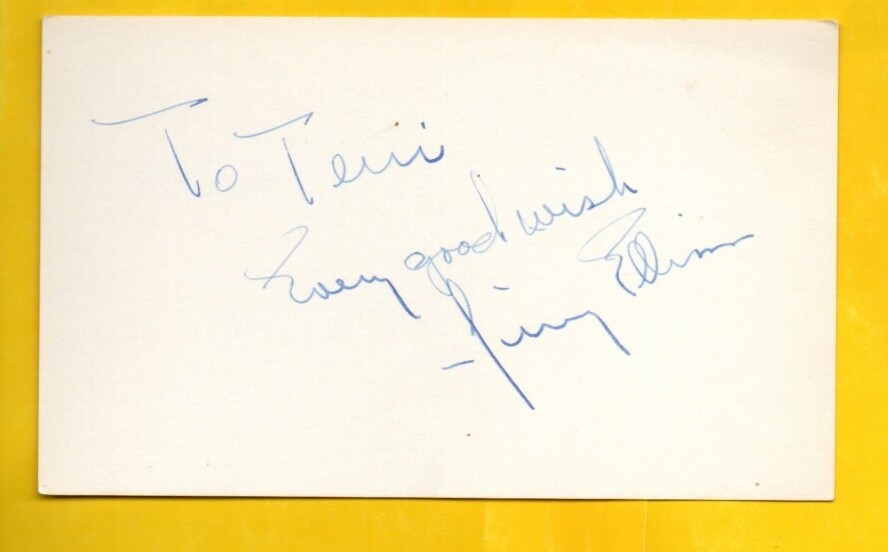 To Terri
Every good wish
Jimmy Ellison